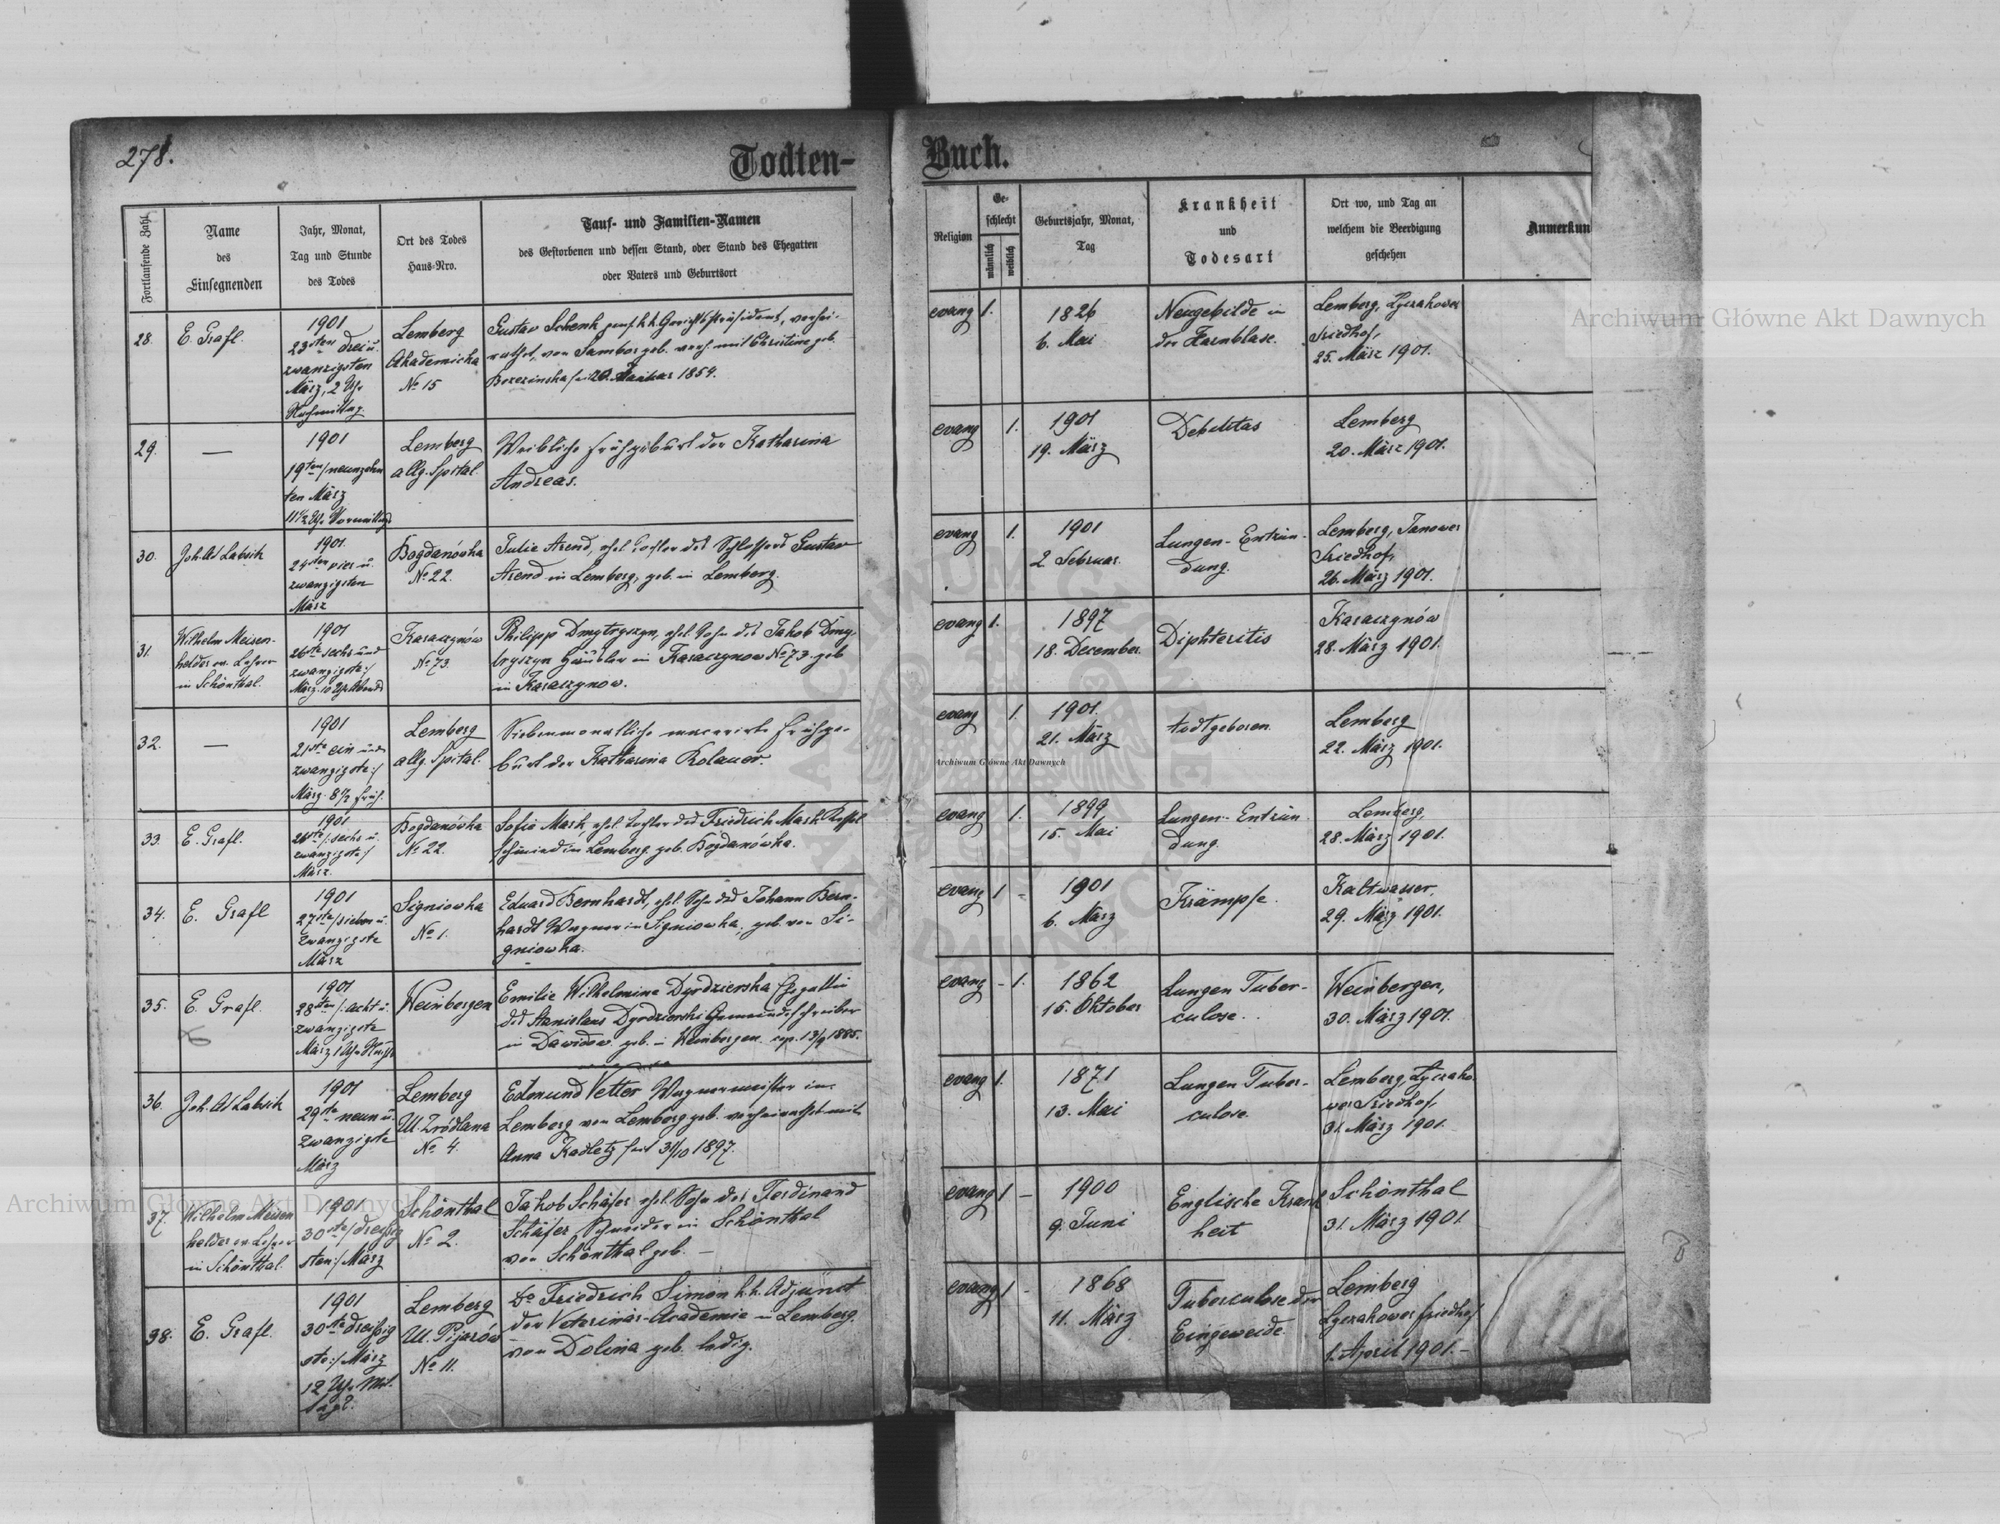 278.
Todten-
Buch.
Fortlaufende Zahl
Name
des
Einsegnenden
Jahr, Monat,
Tag und Stunde
des Todes
Ort des Todes
Haus-Nro.
Tauf- und Familien-Namen
des Gestorbenen und dessen Stand, oder Stand des Ehegatten
oder Vaters und Geburtsort
Religion
Ge-
schlecht
männlich
weiblich
Geburtsjahr, Monat,
Tag
Krankheit
und
Todesart
Ort wo, und Tag an
welchem die Beerdigung
geschehen
Anmerkun
28.
E. Grafl.
1901
23sten drei u.
zwanzigsten
März, 2 Uhr
Nachmittag.
Lemberg
Akademicka
No 15
Gustav Schenk pens. k.k. Gerichtspräsident, verhei-
rathet, von Sambor geb. verh. mit Christine geb.
Berezinska seit 20. Januar 1859.
evang
1.
1826
6. Mai
Neugebilde in
der Harnblase.
Lemberg, Lyczakower
Friedhof,
25. März 1901.
29.
—
1901
19ten/neunzehn
ten März
11½ Uhr Vormittag
Lemberg
allg. Spital
Weibliche Frühgeburt der Katharina
Andreas.
evang
1.
1901
19. März
Debilitas
Lemberg
20. März 1901.
30.
Joh. Ad Labsik
1901.
24sten vier u.
zwanzigsten
März
Bogdanówka
No 22.
Julie Arend, ehel. Tochter des Schlossers Gustav
Arend in Lemberg, geb. in Lemberg.
evang
1.
1901
2. Februar.
Lungen-Entzün-
dung.
Lemberg, Janower
Friedhof,
26. März 1901.
31.
Wilhelm Meisen-
helder ev. Lehrer
in Schönthal.
1901
26ste sechs und
zwanzigste:/
März 10 Uhr Abends
Karaczynów
No 73
Philipp Dmytryszyn, ehel. Sohn des Jakob Dmy-
tryszyn Häusler in Karaczynow No 73. geb
in Karaczynow.
evang
1.
1897
18. December.
Diphteritis
Karaczynów
28. März 1901.
32.
—
1901
21ste ein und
zwanzigste:/
März 8½ früh.
Lemberg
allg. Spital.
Siebenmonatliche macerirte Frühge-
burt der Katharina Rolauer.
evang
1.
1901.
21. März
todtgeboren
Lemberg
22. März 1901.
33.
E. Grafl.
1901
26ste/: sechs u.
zwanzigste/
März.
Bogdanówka
No 22.
Sofie Mark, ehel. Tochter des Friedrich Mark
schmied in Lemberg geb. Bogdanówka.
evang
1.
1899
15. Mai
Lungen-Entzün
dung.
Lemberg
28. März 1901.
34.
E. Grafl
1901
27ste/sieben u.
zwanzigste
März
Signiowka
No 1.
Eduard Bernhardt, ehel. Sohn des Johann Bern-
hardt Wagner in Signiowka, geb. von Si-
gniowka.
evang
1
-
1901
6. März
Krämpfe.
Kaltwasser.
29. März 1901.
35.
E. Grafl.
1901
28sten/: acht u.
zwanzigste
März 1 Uhr Nachts
Weinbergen
Emilie Wilhelmina Dyrdzierska Ehegattin
des Stanislaus Dyrdzierski Gemeindeschreiber
in Dawidow geb. in Weinbergen cop. 13/9 1885.
evang
-
1.
1862
15. Oktober
Lungen Tuber-
culose.
Weinbergen,
30. März 1901.
36.
Joh. Ad Labsik
1901
29ste neun u.
zwanzigste
März
Lemberg
Ul. Zródlana
No 4.
Edmund Vetter Wagnermeister in
Lemberg von Lemberg geb. verheirathet mit
Anna Kadletz seit 31/10 1897.
evang
1.
1871
13. Mai
Lungen Tuber-
culose
Lemberg, Lyczako-
wer Friedhof,
31. März 1901.
37.
Wilhelm Meisen
helder ev. Lehrer
in Schönthal.
1901
30ste/dreißig
sten:/ März
Schönthal
No 2.
Jakob Schäfer ehel. Sohn des Ferdinand
Schäfer Schneider in Schönthal
von Schönthal geb. —
evang
1
-
1900
9. Juni
Englische Krank
heit
Schönthal
31. März 1901.
38.
E. Grafl.
1901
30ste dreißig
ste:/ März
12 Uhr Mit-
tags.
Lemberg
Ul. Pijarów
No 11.
Dr Friedrich Simon k.k. Adjunct
der Veterinär-Academie in Lemberg
von Dolina geb. ledig.
evang
1
-
1868
11. März
Tuberculose der
Eingeweide
Lemberg
Lyczakower Friedhof
1. April 1901.—
Archiwum Główne Akt Dawnych
Archiwum Główne Akt Dawnych
Archiwum Główne Akt Dawnych